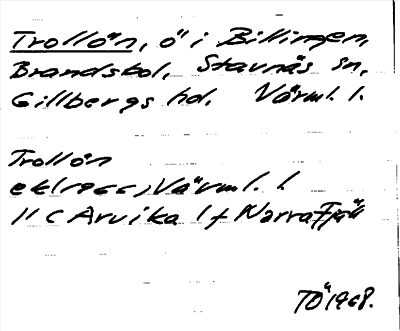 Trollön, ö i Billingen,
Brandsbol, Stavnäs sn,
Gillbergs hd. Värml. l.
Trollön
ek(recc) Värml. l.
11 C Arvika 1 f Norra Fjöle
TÖ 1968.